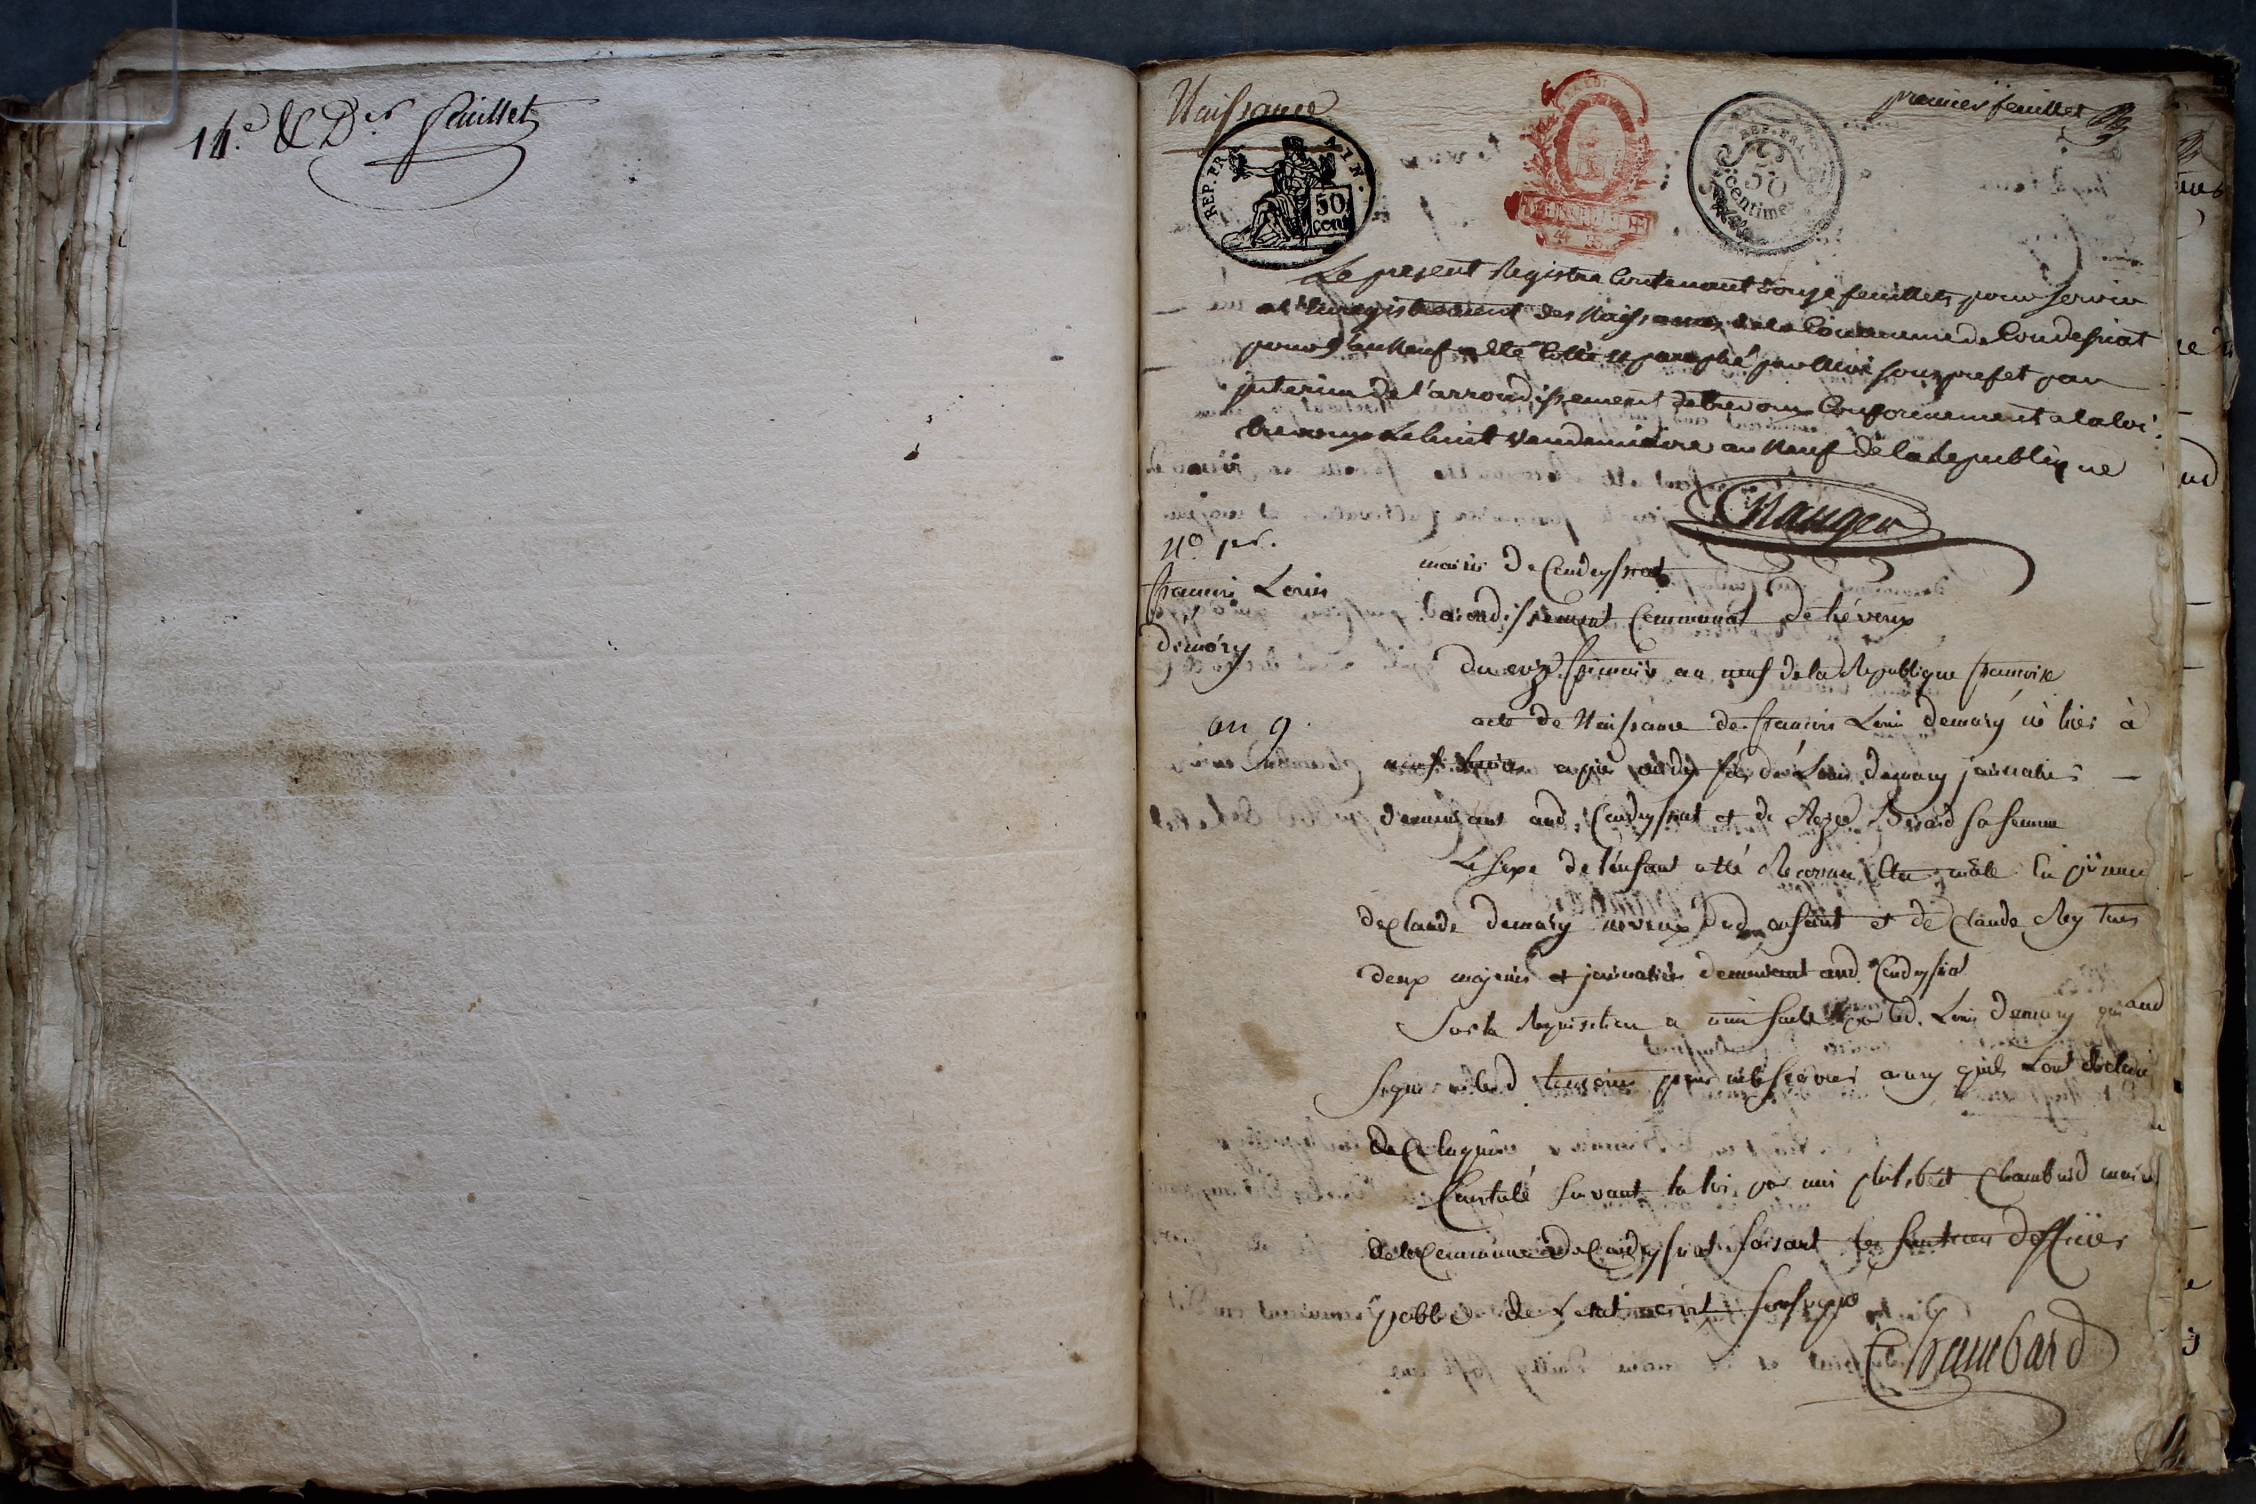 14.e & D.er feuillet
Naissance
premier feuillet
REP. FRA
AIN.
50
cent
REP. FRA
50
centimes
Le present Registre Contenant feuillets pour servir
a l'enregistrement des Naissances de la Commune de Condessiat
pour l'an Neuf a été Cotté et paraphé par Nous sous prefet par
interim de l'arrondissement de trevoux Conformement a la loi.
trevoux Le huit Vendemiaire an Neuf de la Republique
N.o 1er.
mairie de Condeyssiat
francois Louis
arondissement Communal de trévoux
demory
du onze frimaire an neuf de la Republique francoise
an 9.
acte de Naissance de francois Louis demory né hier à
neuf heures apres midy fils de Louis demory journalier
demeurant aud. Condeyssiat et de Bérard sa femme
Le sexe de l'enfant a été Reconnu etre mâle En présence
de Claude demory dud. enfant et de Claude Rey tous
deux majeurs et journaliers demeurant aud. Condeyssiat
Sur la Requisition a moi faite par led. Louis demory
signer ny led. temoins pour ne le scavoir quils L'ont déclaré
de Ce Enquis
Constaté suivant la loi, par moi philibert Chambard maire
de la Commune de Condeyssiat faisant les fonctions d'officier
public de L'etat civil soussigné
Chambard